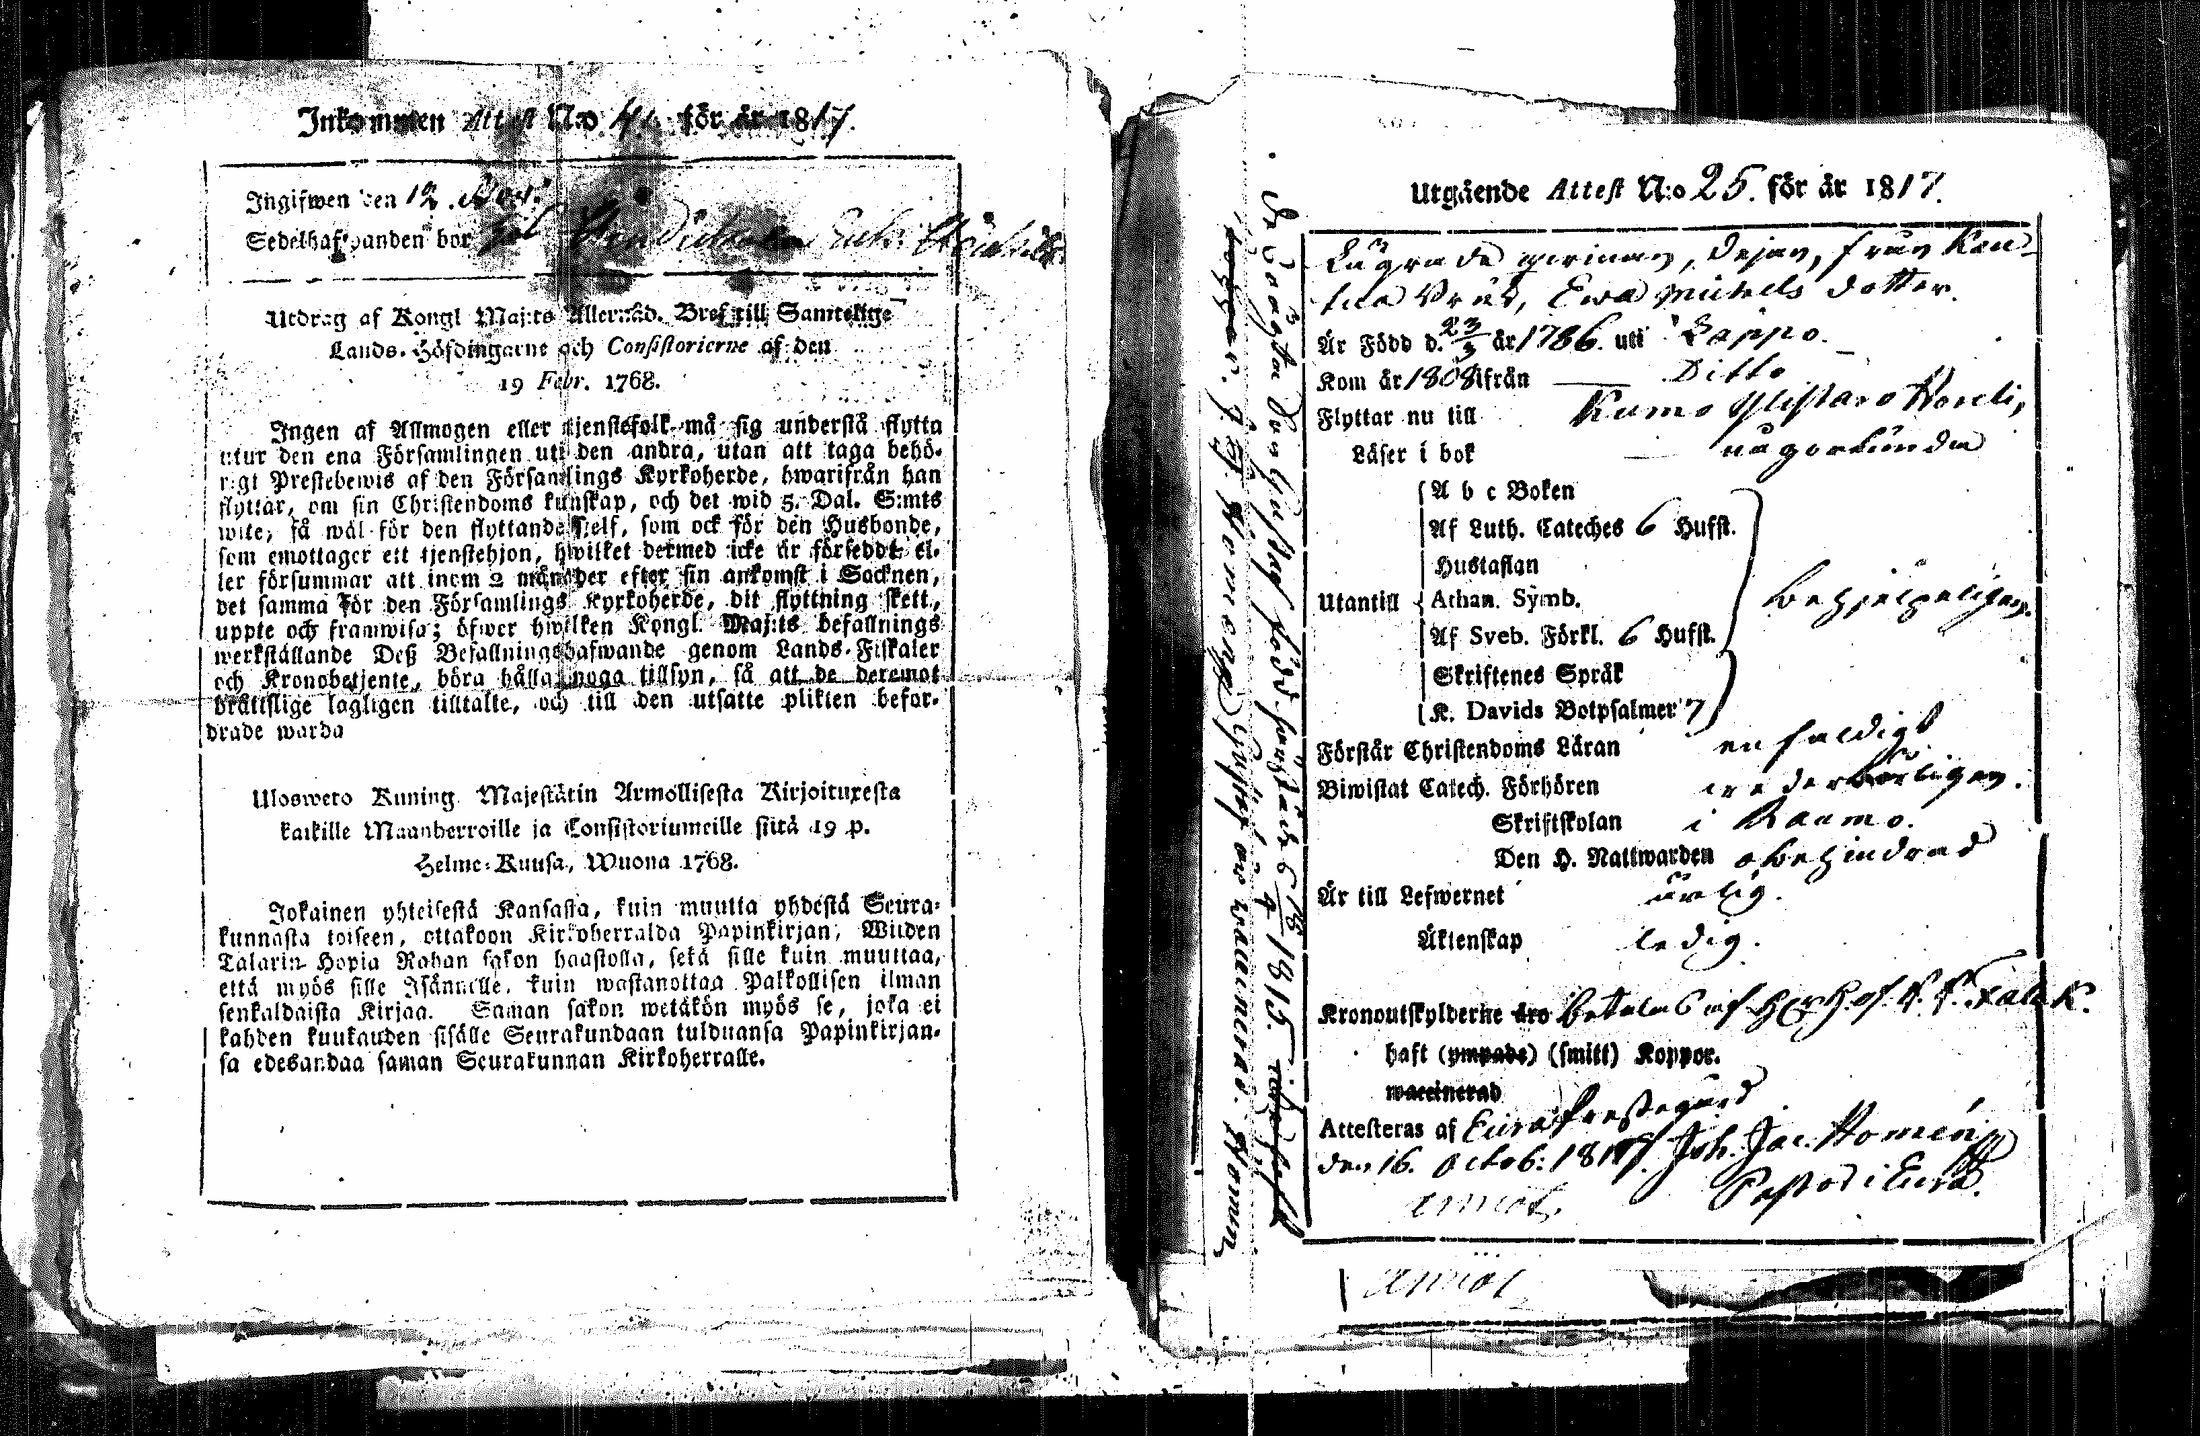 Inkommen Attest N:o 41. för år 1817.
Ingifwen den 12. Nov:
Sedelhafwanden bor
Utdrag af Kongl Maj:ts Allernåd. Bref till Samtelige
Lands-Höfdingarne och Consistorierne af den
19 Febr. 1768.
Ingen af Allmogen eller tjenstefolk må sig understå flytta
utur den ena Församlingen uti den andra, utan att taga behö-
rigt Prestebewis af den Församlings Kyrkoherde, hwarifrån han
flyttar, om sin Christendoms kunskap, och det wid 5. Dal. S:mts
wite, så wäl för den flyttande sjelf, som ock för den Husbonde,
som emottager ett tjenstehjon, hwilket dermed icke är försedt, el-
ler försummar att inom 2 månader efter sin ankomst i Socknen,
det samma för den Församlings Kyrkoherde, dit flyttning skett,
uppte och framwisa; öfwer hwilken Kongl. Maj:ts befallnings
werkställande Deß Befallningshafwande genom Lands-Fiskaler
och Kronobetjente, böra hålla noga tillsyn, så att de deremot
bråttslige lagligen tilltalte, och till den utsatte plikten befor-
drade warda
Ulosweto Kuning. Majestätin Armollisesta Kirjoituxesta
kaikille Maanherroille ja Consistoriumeille siitä 19 p.
Helme-Kuusa, Wuona 1768.
Jokainen yhteisestä Kansasta, kuin muutta yhdestä Seura-
kunnasta toiseen, ottakoon Kirkoherralda Papinkirjan, Wiiden
Talarin Hopia Rahan sakon haastolla, sekä sille kuin muuttaa,
että myös sille Isännälle, kuin wastanottaa Palkollisen ilman
senkaldaista Kirjaa. Saman sakon wetäkön myös se, joka ei
kahden kuukauden sisälle Seurakundaan tulduansa Papinkirjan-
sa edesandaa saman Seurakunnan Kirkoherralle.
Utgående Attest N:o 25. för år 1817.
Lägrade qvinnan, Dejan, från Kau-
tua Bruk, Ewa Michels dotter.
Är Född d. 23/3 år 1786. uti Lappo.
Kom år 1808 ifrån Ditto
Flyttar nu till Kumo Ylistaro Horeli,
Läser i bok någorlunda
A b c Boken
Af Luth. Cateches 6 Hufst.
Hustaflan
Utantill Athan. Symb. behjelpeligen.
Af Sveb. Förkl. 6 Hufst.
Skriftenes Språk
K. Davids Botpsalmer 7
Förstår Christendoms Läran enfaldigt
Biwistat Catech. Förhören wederbörligen.
Skriftskolan i Raumo.
Den H. Nattwarden obehindrad
Är till Lefwernet ärlig.
Äktenskap ledig.
Kronoutskylderne äro betalas af
haft (ympade) (smitt) Koppor.
waccinerad
Attesteras af Eura Prestegård
den 16. Octob: 1817. Joh. Jac. Homén
Pastor i Eura.